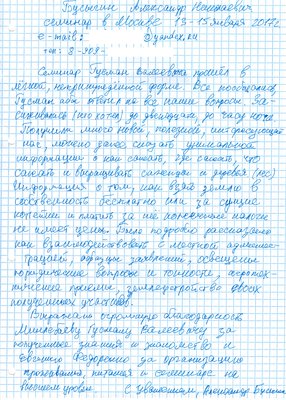 Бусыгин Александр Николаевич
семинар в Москве 13-15 января 2017 г.
e-mail: @yandex.ru
тел: 8-909-
Семинар Гусман Валеевича прошёл в
лёгкой, непринуждённой форме. Все пообщались,
Гусман абы ответил на все наши вопросы. За-
сиживались (кто хотел) до двенадцати, до часу ночи.
Получили много новой, полезной, интересующей
нас, можно даже сказать уникальной
информации о как сажать, где сажать, что
сажать и выращивать саженцы и деревья (лес)
Информация о том, как взять землю в
собственность бесплатно или за сущие
копейки и платить за неё копеечные налоги
не имеет цены. Было подробно рассказано
как взаимодействовать с местной админис-
трацией, образцы заявлений, освещены
юридические вопросы и тонкости, агротех-
нические приёмы, землеустройство своих
полученных участков.
Выражаем огромную Благодарность
Минлебаеву Гусману Валеевичу за
полученные знания и знакомство и
Евгению Федоренко за организацию
проживания, питания и семинара на
высшем уровне.
С уважением, Александр Бусыгин